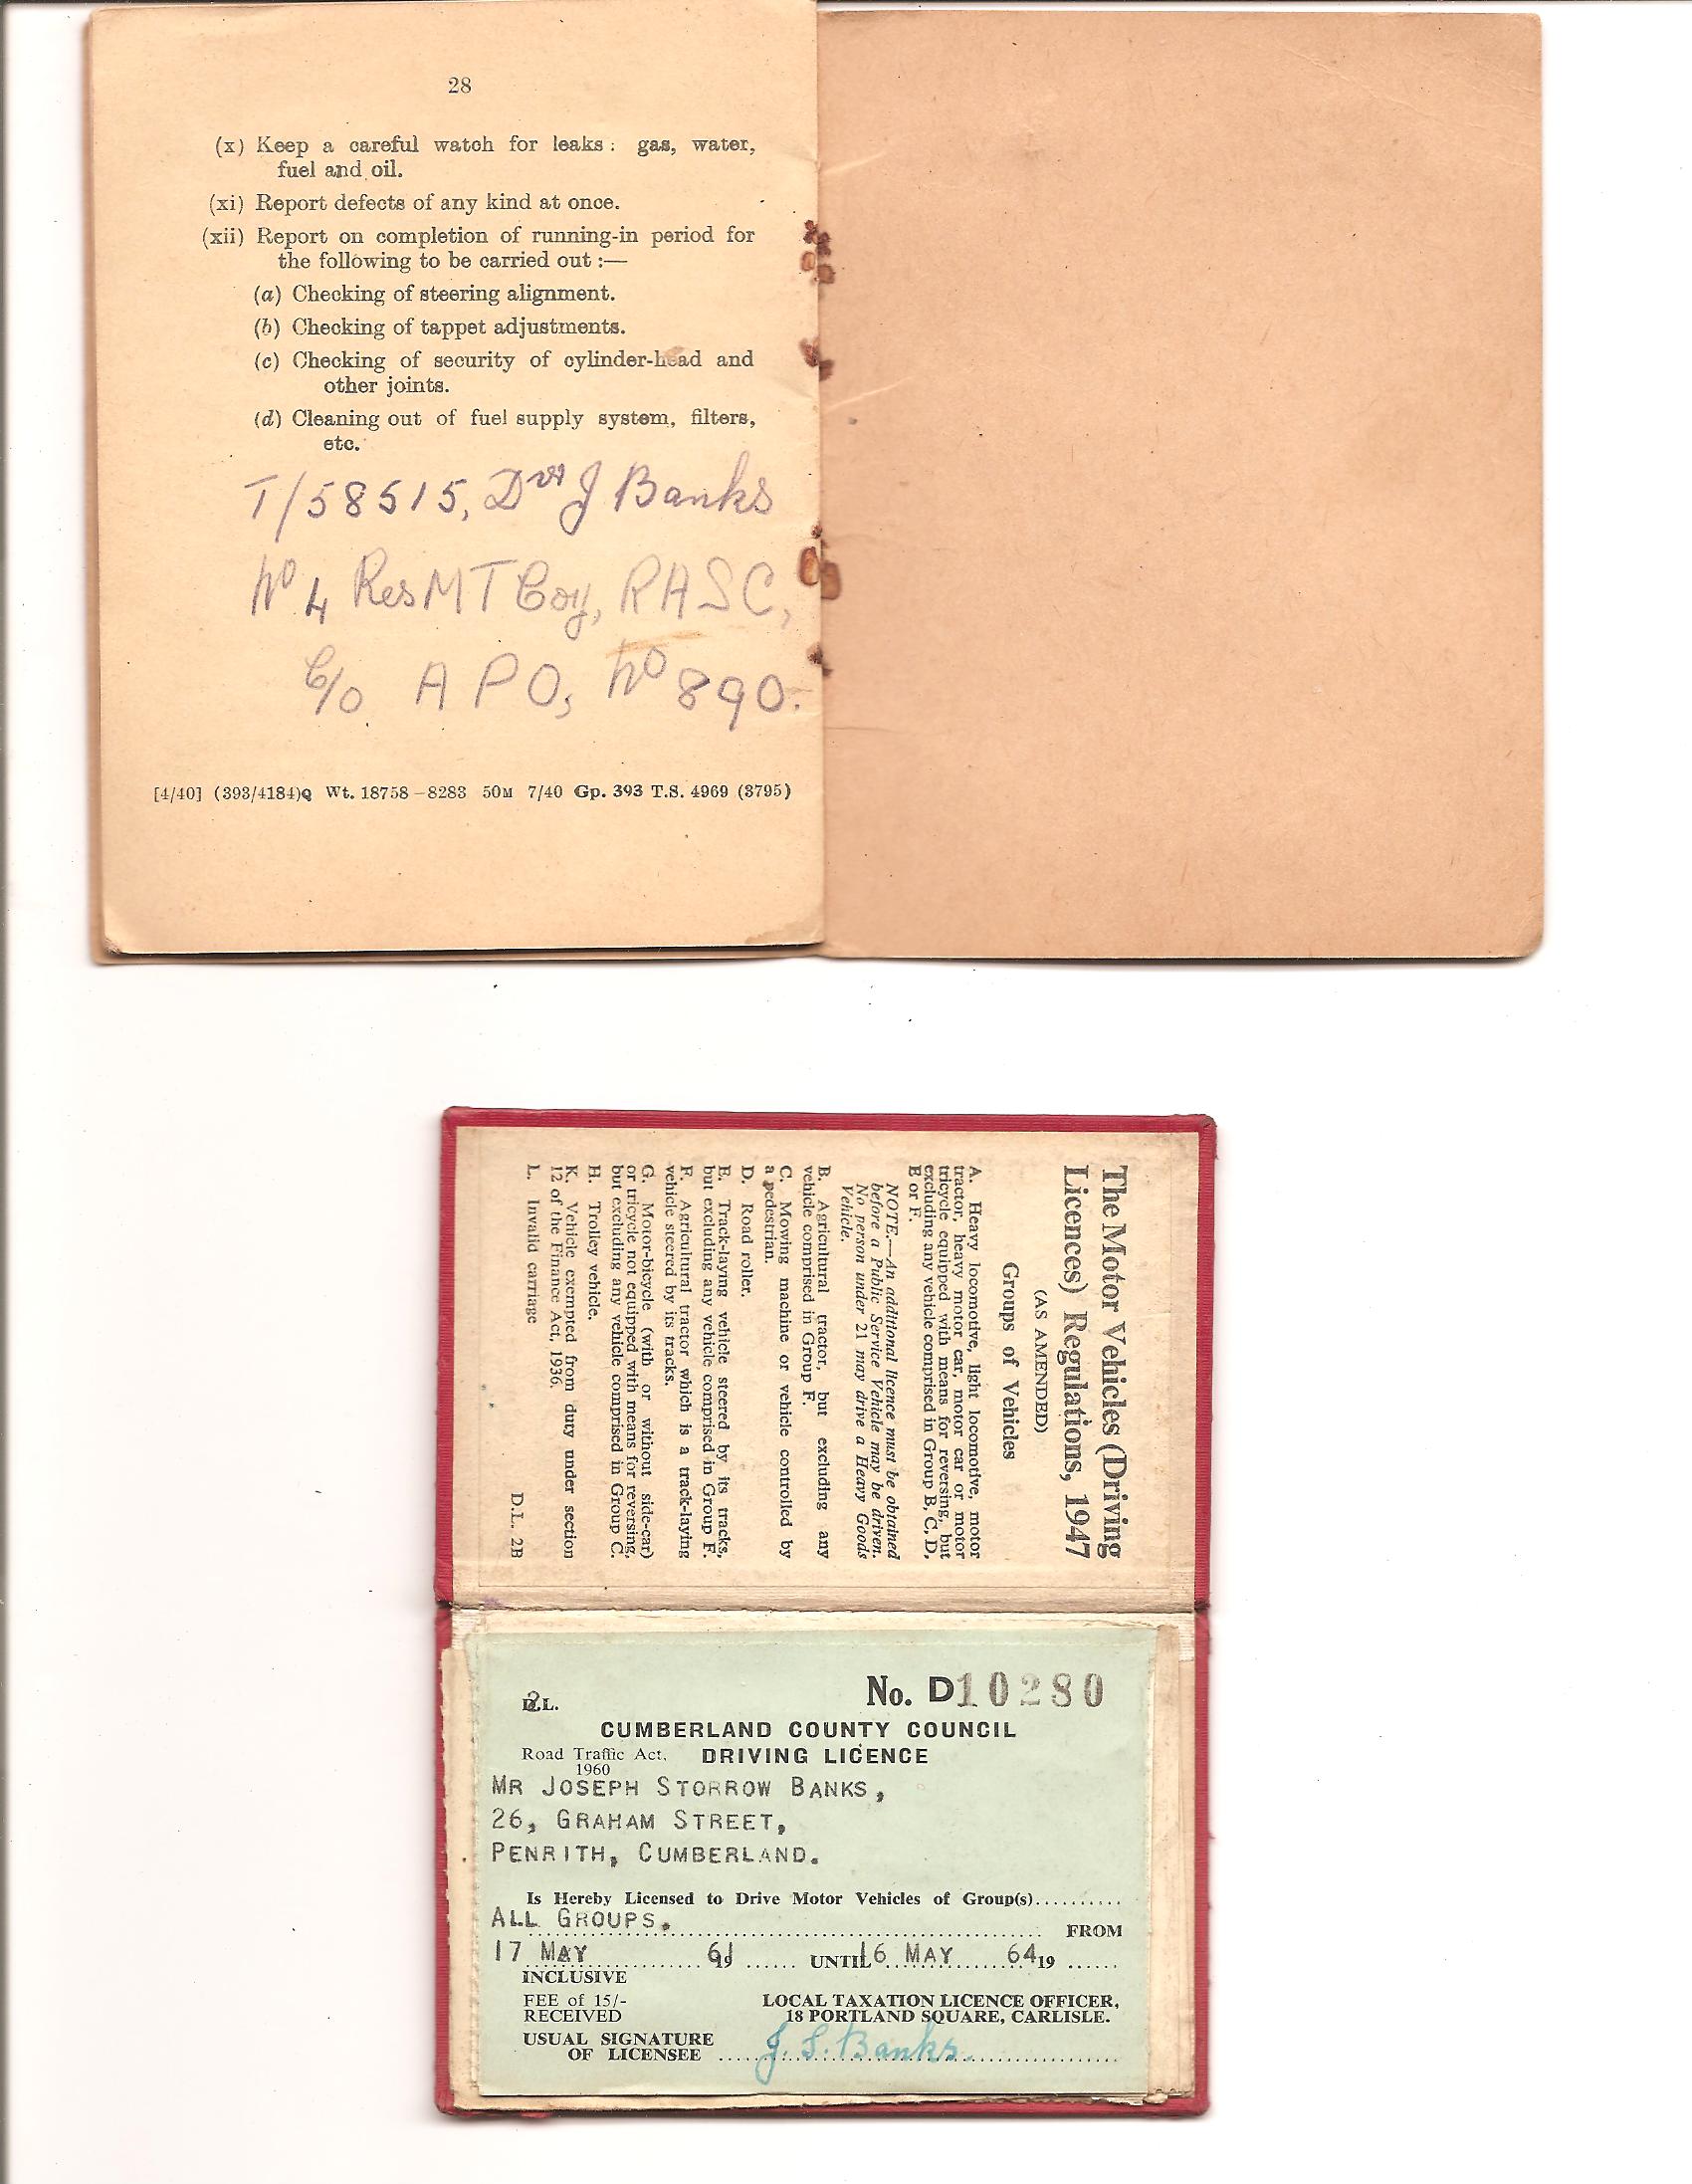 28
(x) Keep a careful watch for leaks : gas, water,
fuel and oil.
(xi) Report defects of any kind at once.
(xii) Report on completion of running-in period for
the following to be carried out :—
(a) Checking of steering alignment.
(b) Checking of tappet adjustments.
(c) Checking of security of cylinder-head and
other joints.
(d) Cleaning out of fuel supply system, filters,
etc.
T/58515, Dvr J Banks
No 4 Res M T Coy, RASC,
C/o A P O, No 890.
[4/40] (393/4184)Q Wt. 18758–8283 50M 7/40 Gp. 393 T.S. 4969 (3795)
The Motor Vehicles (Driving
Licences) Regulations, 1947
(AS AMENDED)
Groups of Vehicles
A. Heavy locomotive, light locomotive, motor
tractor, heavy motor car, motor car or motor
tricycle equipped with means for reversing, but
excluding any vehicle comprised in Group B, C, D,
E or F.
NOTE.—An additional licence must be obtained
before a Public Service Vehicle may be driven.
No person under 21 may drive a Heavy Goods
Vehicle.
B. Agricultural tractor, but excluding any
vehicle comprised in Group F.
C. Mowing machine or vehicle controlled by
a pedestrian.
D. Road roller.
E. Track-laying vehicle steered by its tracks,
but excluding any vehicle comprised in Group F.
F. Agricultural tractor which is a track-laying
vehicle steered by its tracks.
G. Motor-bicycle (with or without side-car)
or tricycle not equipped with means for reversing,
but excluding any vehicle comprised in Group C.
H. Trolley vehicle.
K. Vehicle exempted from duty under section
12 of the Finance Act, 1936.
L. Invalid carriage
D.L. 2B
No. D10280
D.L.
CUMBERLAND COUNTY COUNCIL
Road Traffic Act, DRIVING LICENCE
1960
MR JOSEPH STORROW BANKS,
26, GRAHAM STREET,
PENRITH, CUMBERLAND.
Is Hereby Licensed to Drive Motor Vehicles of Group(s)..........
ALL GROUPS. FROM
17 MAY 61 19 ...... UNTIL 16 MAY 64 19 ......
INCLUSIVE
FEE of 15/- LOCAL TAXATION LICENCE OFFICER,
RECEIVED 18 PORTLAND SQUARE, CARLISLE.
USUAL SIGNATURE
OF LICENSEE J. S. Banks